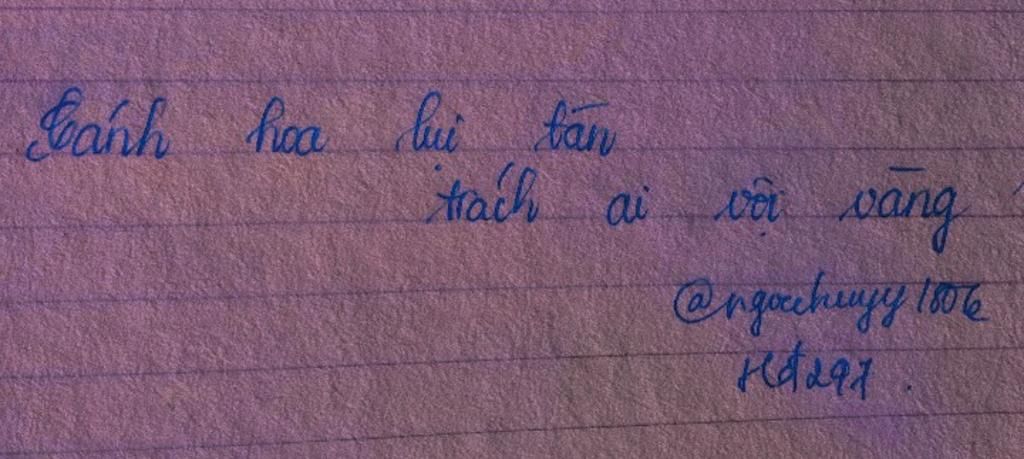 Cánh hoa lụi tàn
trách ai vội vàng
@ngocchuyy1806
HĐ297.